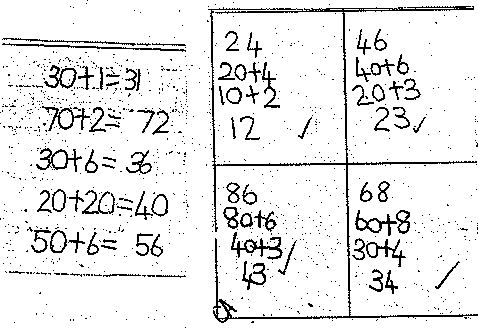 30+1=31
70+2= 72
30+6= 36
20+20=40
50+6= 56
24
20+4
10+2
12 ✓
46
40+6
20+3
23 ✓
86
80+6
40+3
43 ✓
68
60+8
30+4
34 ✓